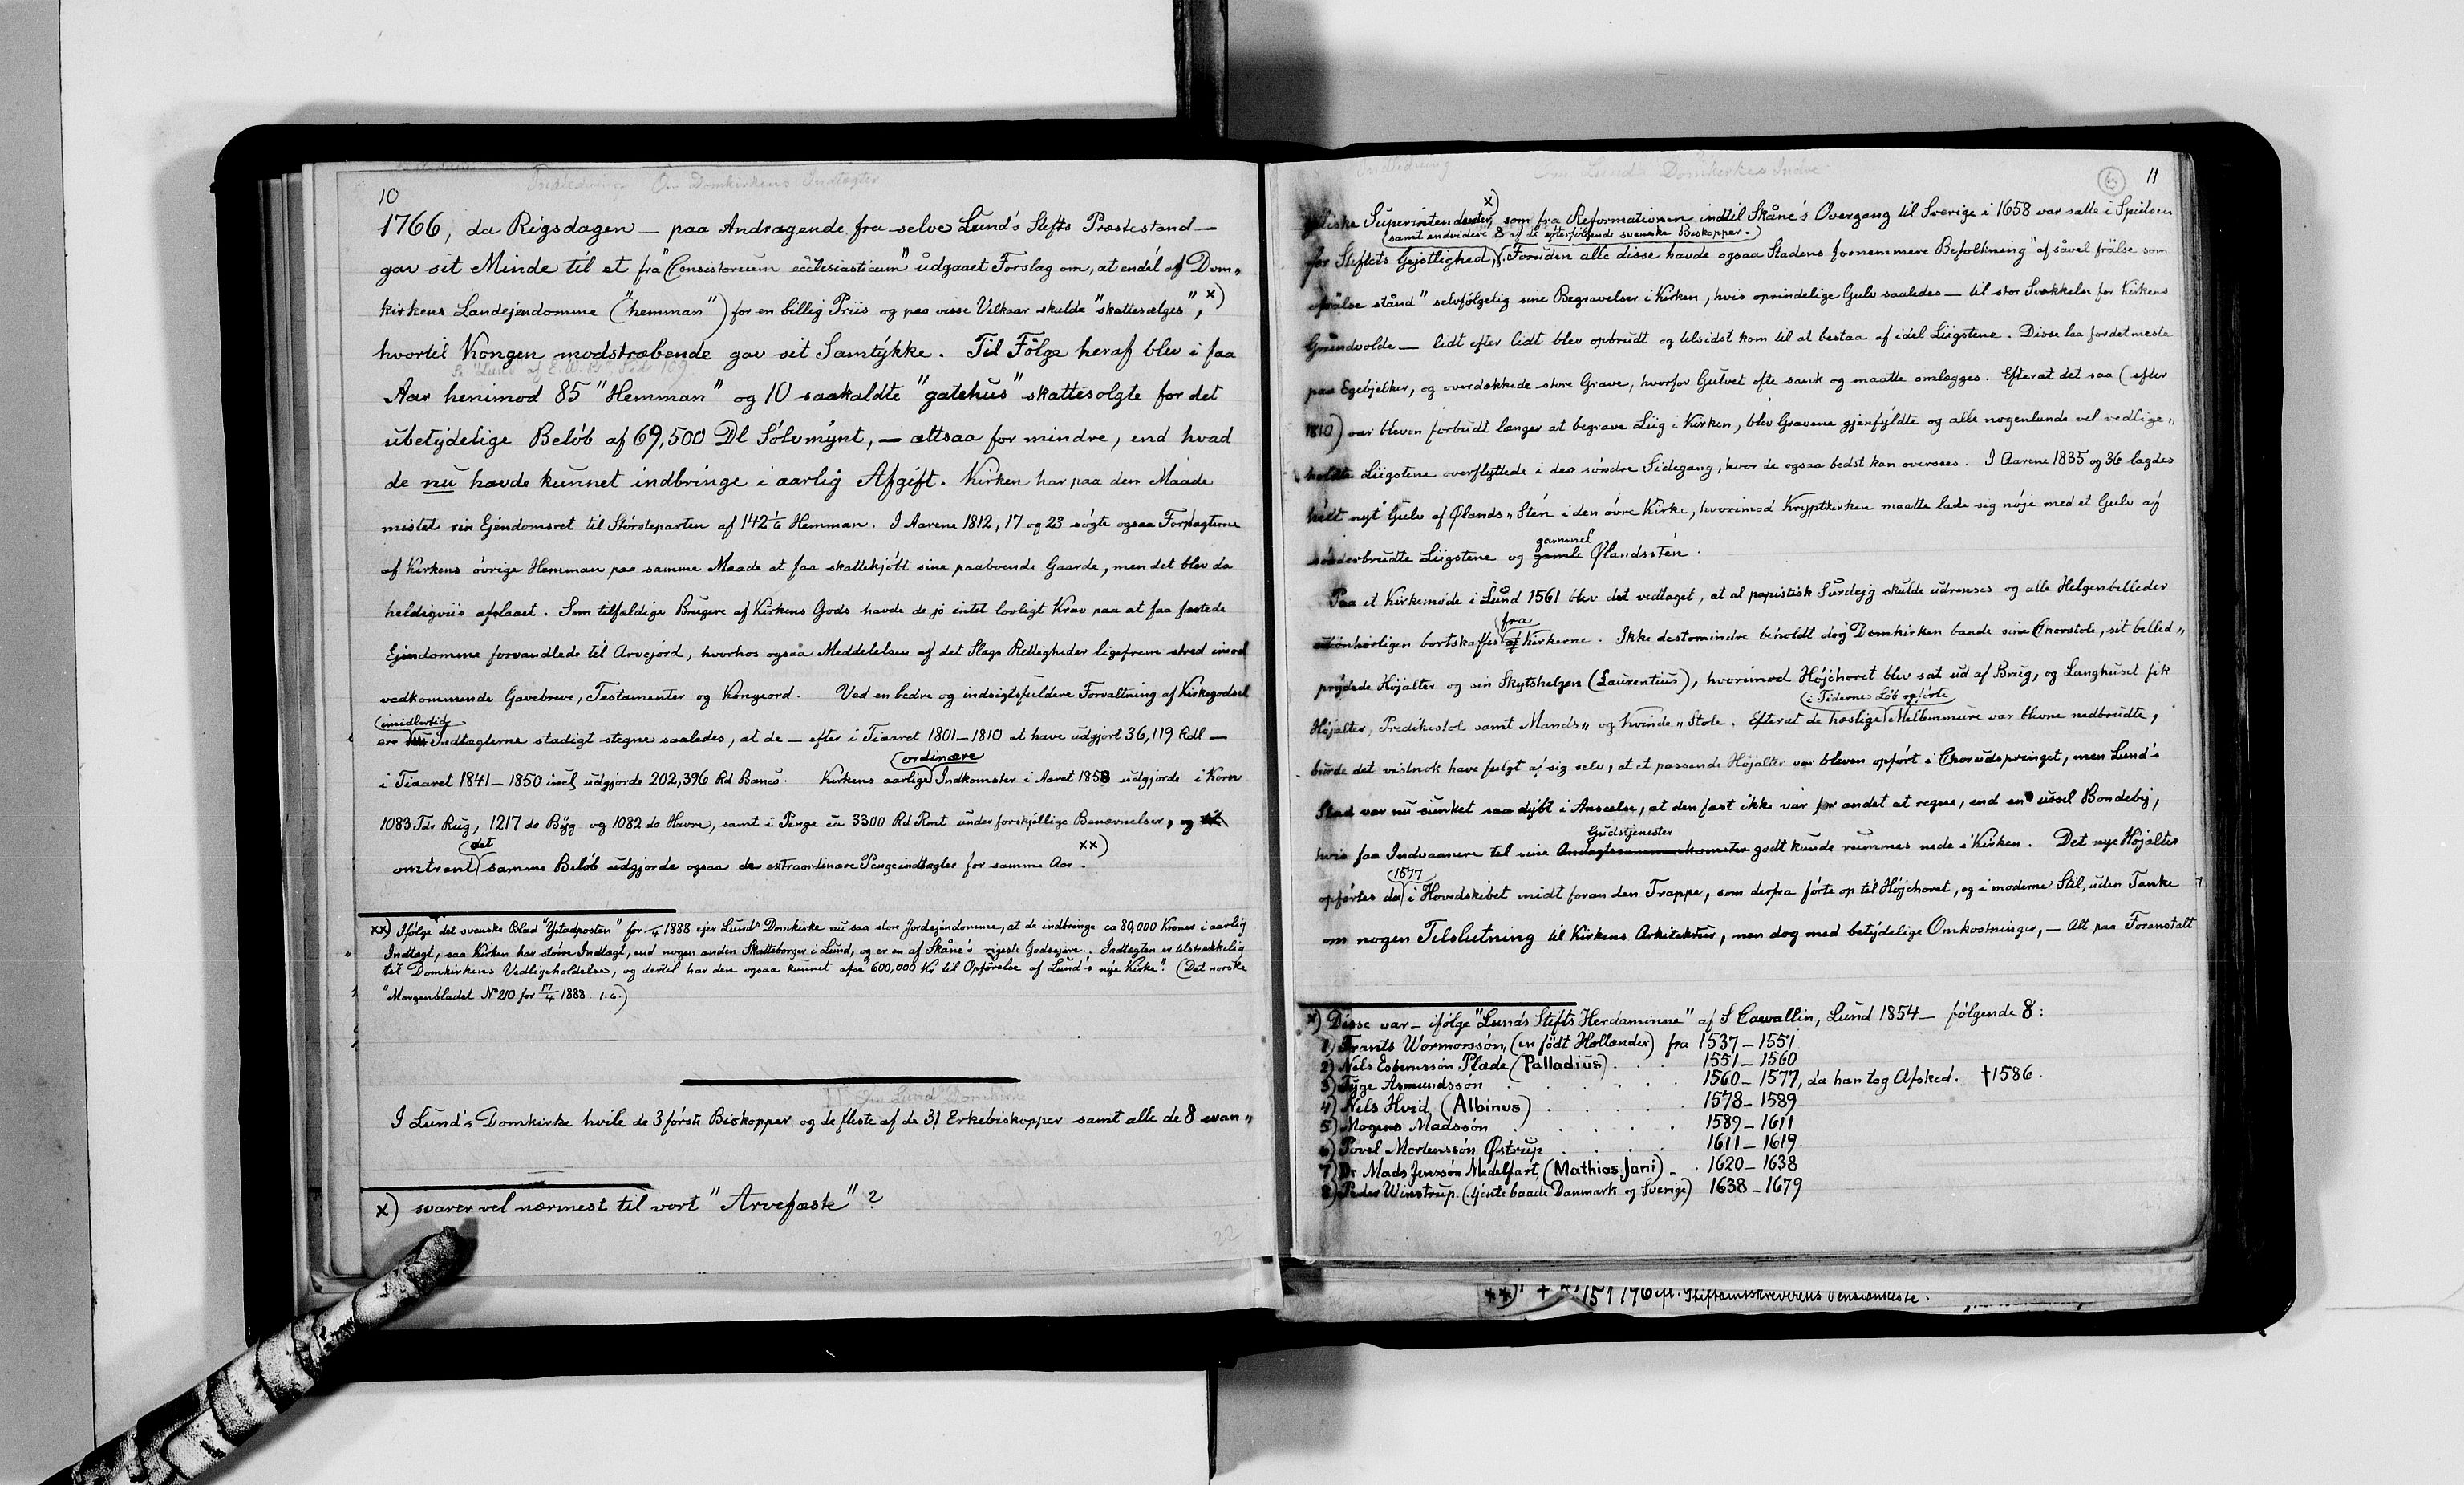 Indledning Om Domkirkens Indtægter
10
1766, da Rigsdagen — paa Andragende fra selve Lund's Stifts Præstestand —
gav sit Minde til et frå "Consistorium ecclesiasticum" udgaaet Forslag om, at endel af Dom„
kirkens Landejendomme ("hemman") for en billig Priis og paa visse Vilkaar skulde "skattesælges", x)
hvortil Kongen modstræbende gav sit Samtykke. Til Følge heraf blev i faa
Se "Lund af E. W. B", Side 109.
Aar henimod 85 "Hemman" og 10 saakaldte "gatehus" skattesolgte for det
ubetydelige Beløb af 69,500 Dl Sølvmynt, — altsaa for mindre, end hvad
de nu havde kunnet indbringe i aarlig Afgift. Kirken har paa den Maade
mistet sin Ejendomsret til Størsteparten af 142 1/6 Hemman. I Aarene 1812, 17 og 23 søgte ogsaa Forpagterne
af Kirkens øvrige Hemman paa samme Maade at faa skattekjøbt sine paaboende Gaarde, men det blev da
heldigviis afslaaet. Som tilfældige Brugere af Kirkens Gods havde de jo intet lovligt Krav paa at faa fæstede
Ejendomme forvandlede til Arvejord, hvorhos ogsaa Meddelelsen af det Slags Rettigheder ligefrem stred imod
vedkommende Gavebreve, Testamenter og Kongeord. Ved en bedre og indsigtsfuldere Forvaltning af Kirkegodset
(imidlertid
ere Indtægterne stadigt stegne saaledes, at de — efter i Tiaaret 1801–1810 at have udgjort 36,119 Rdl —
(ordinære
i Tiaaret 1841–1850 incl. udgjorde 202,396 Rd Banco. Kirkens aarlige Indkomster i Aaret 1858 udgjorde i Korn
1083 Tdr Rug, 1217 do Byg og 1082 do Havre, samt i Penge ca 3300 Rd Rmt under forskjellige Benævnelser, og
(det
omtrent samme Beløb udgjorde ogsaa de extraordinære Pengeindtægter for samme Aar. xx)
xx) Ifølge det svenske Blad "Ystadposten" for /4 1888 ejer Lunds Domkirke nu saa store Jordejendomme, at de indbringe ca 80,000 Kroner i aarlig
Indtægt, saa Kirken har større Indtægt, end nogen anden Skatteborger i Lund, og er en af Skåne's rigeste Godsejere. Indtægten er tilstrækkelig
til Domkirkens Vedligeholdelse, og dertil har den ogsaa kunnet afse "600,000 Kr til Opførelse af Lund's nye Kirke". (Det norske
"Morgenbladet No 210 for 17/4 1888 )
II Om Lund Domkirke
I Lund's Domkirke hvile de 3 første Biskopper og de fleste af de 31 Erkebiskopper samt alle de 8 evan„
x) svarer vel nærmest til vort "Arvefæste"?
22
Indledning Om Lunds Domkirkes Indre
11
geliske Superintendenter, x) som fra Reformationen indtil Skåne's Overgang til Sverige i 1658 var satte i Spidsen
(samt endvidere 8 af de efterfølgende svenske Biskopper.)
for Stiftets Gejstlighed. Foruden alle disse havde ogsaa Stadens fornemmere Befolkning "af såvel frälse som
ofrälse stånd" selvfølgelig sine Begravelser i Kirken, hvis oprindelige Gulv saaledes — til stor Svækkelse for Kirkens
Grundvolde — lidt efter lidt blev opbrudt og tilsidst kom til at bestaa af idel Liigstene. Disse laa fordetmeste
paa Egebjelker, og overdækkede store Grave, hvorfor Gulvet ofte sank og maatte omlægges. Efterat det saa (efter
1810) var bleven forbudt længer at begrave Liig i Kirken, blev Gravene gjenfyldte og alle nogenlunde vel vedlige„
holdte Liigstene overflyttede i den søndre Sidegang, hvor de ogsaa bedst kan oversees. I Aarene 1835 og 36 lagdes
helt nyt Gulv af Ølands„Sten i den øvre Kirke, hvorimod Kryptkirken maatte lade sig nøje med et Gulv af
gammel
sønderbrudte Liigstene og gamle Ølandssten.
Paa et Kirkemøde i Lund 1561 blev det vedtaget, at al papistisk Surdejg skulde udrenses og alle Helgenbilleder
(fra
uhønhørligen bortskaffes af Kirkerne. Ikke destomindre beholdt dog Domkirken baade sine Chorstole, sit billed„
prydede Højalter og sin Skytshelgen (Laurentius), hvorimod Højchoret blev sat ud af Brug, og Langhuset fik
(i Tidernes Løb opførte
Højalter, Predikestol samt Mands„ og Kvinde„Stole. Efterat de hæslige Mellemmure var blevne nedbrudte,
burde det vistnok have fulgt af sig selv, at et passende Højalter var bleven opført i Chorudspringet, men Lund's
Stad var nu sunket saa dybt i Anseelse, at den fast ikke var for andet at regne, end en ussel Bondeby,
Gudstjenester
hvis faa Indvaanere til sine Andagtssammenkomster godt kunde rummes nede i Kirken. Det nye Højalter
(1577
opførtes da i Hovedskibet midt foran den Trappe, som derfra førte op til Højchoret, og i moderne Stil, uden Tanke
om nogen Tilslutning til Kirkens Arkitektur, men dog med betydelige Omkostninger, — Alt paa Foranstalt
x) Disse var — ifølge "Lunds Stifts Herdaminne" af S Cawallin, Lund 1854 — følgende 8:
1) Frants Wormorssøn, (en født Hollænder) fra 1537–1551
2) Niels Esbernssøn Plade (Palladius) . . . 1551–1560
3) Tyge Asmundssøn . . . . . 1560–1577, da han tog Afsked. †1586.
4) Niels Hvid (Albinus) . . . . . 1578–1589
5) Mogens Madssøn . . . . . 1589–1611
6) Povel Mortenssøn Østrup . . . . 1611–1619
7) Dr Mads Jenssøn Medelfart, (Mathias Jani) . . 1620–1638
8) Peder Winstrup. (tjente baade Danmark og Sverige) 1638–1679